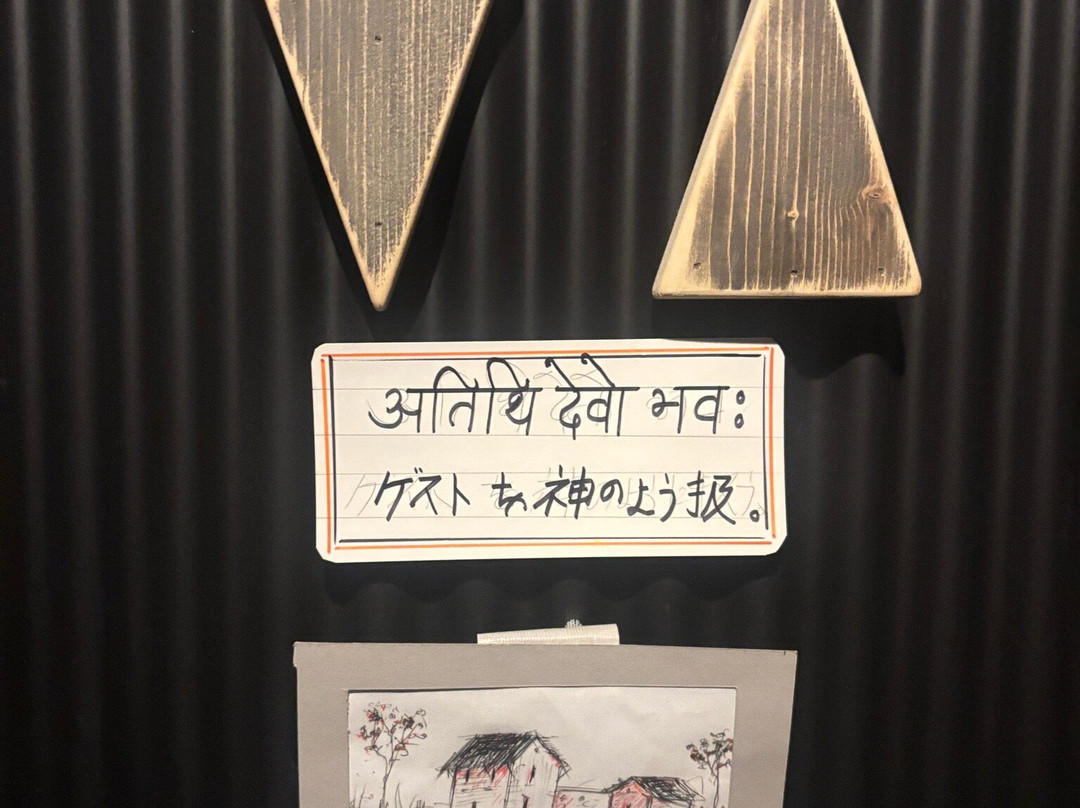 अतिथि देवो भवः
ゲスト を 神のよう扱。